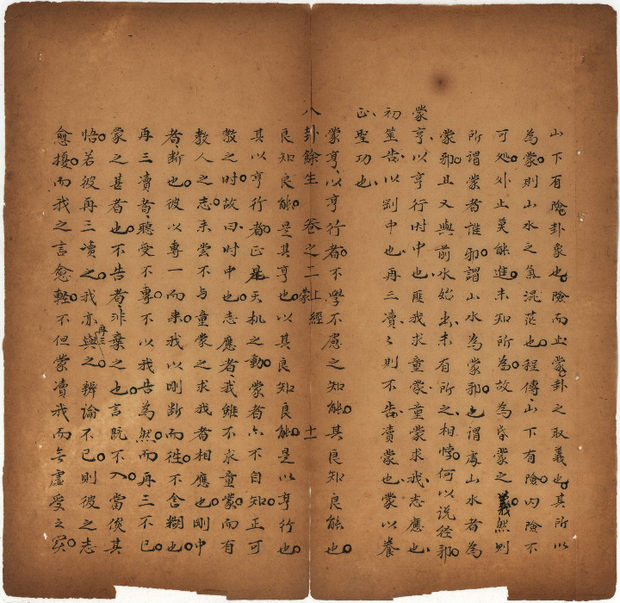 山下有險卦象也險而止蒙卦之取義也其所以
為蒙則山水之氣混茫也程傳山下有險內險不
可処外止莫能進未知所為故為昏蒙之義然則
所謂蒙者誰邪謂山水為蒙邪也謂處山水者為
蒙邪且又與前水始出未有所之相悖何以説經邪
蒙亨以亨行时中也匪我求童蒙童蒙求我志應也
初筮告以剛中也再三瀆瀆則不告瀆蒙也蒙以養
正聖功也
蒙亨以亨行者不學不慮之知能其良知良能也
八卦餘生 卷之二 蒙 上經 十一
良知良能是其亨也以其良知良能是以亨行也
其以亨行者正是天机之動蒙者亦不自知正可
教之时故曰时中也志應者我雖不求童蒙而有
教人之志未尝不与童蒙之求我者相應也剛中
者断也彼以專一而来我以剛断而徃不含糊也
再三瀆者聽受不專不以我告為然而再三不已
蒙之甚者也不告者非棄之也言既不入當俟其
悟若彼再三瀆之我亦再三與之辨論不已則彼之志
愈擾而我之言愈輕不但蒙瀆我而無虛受之实